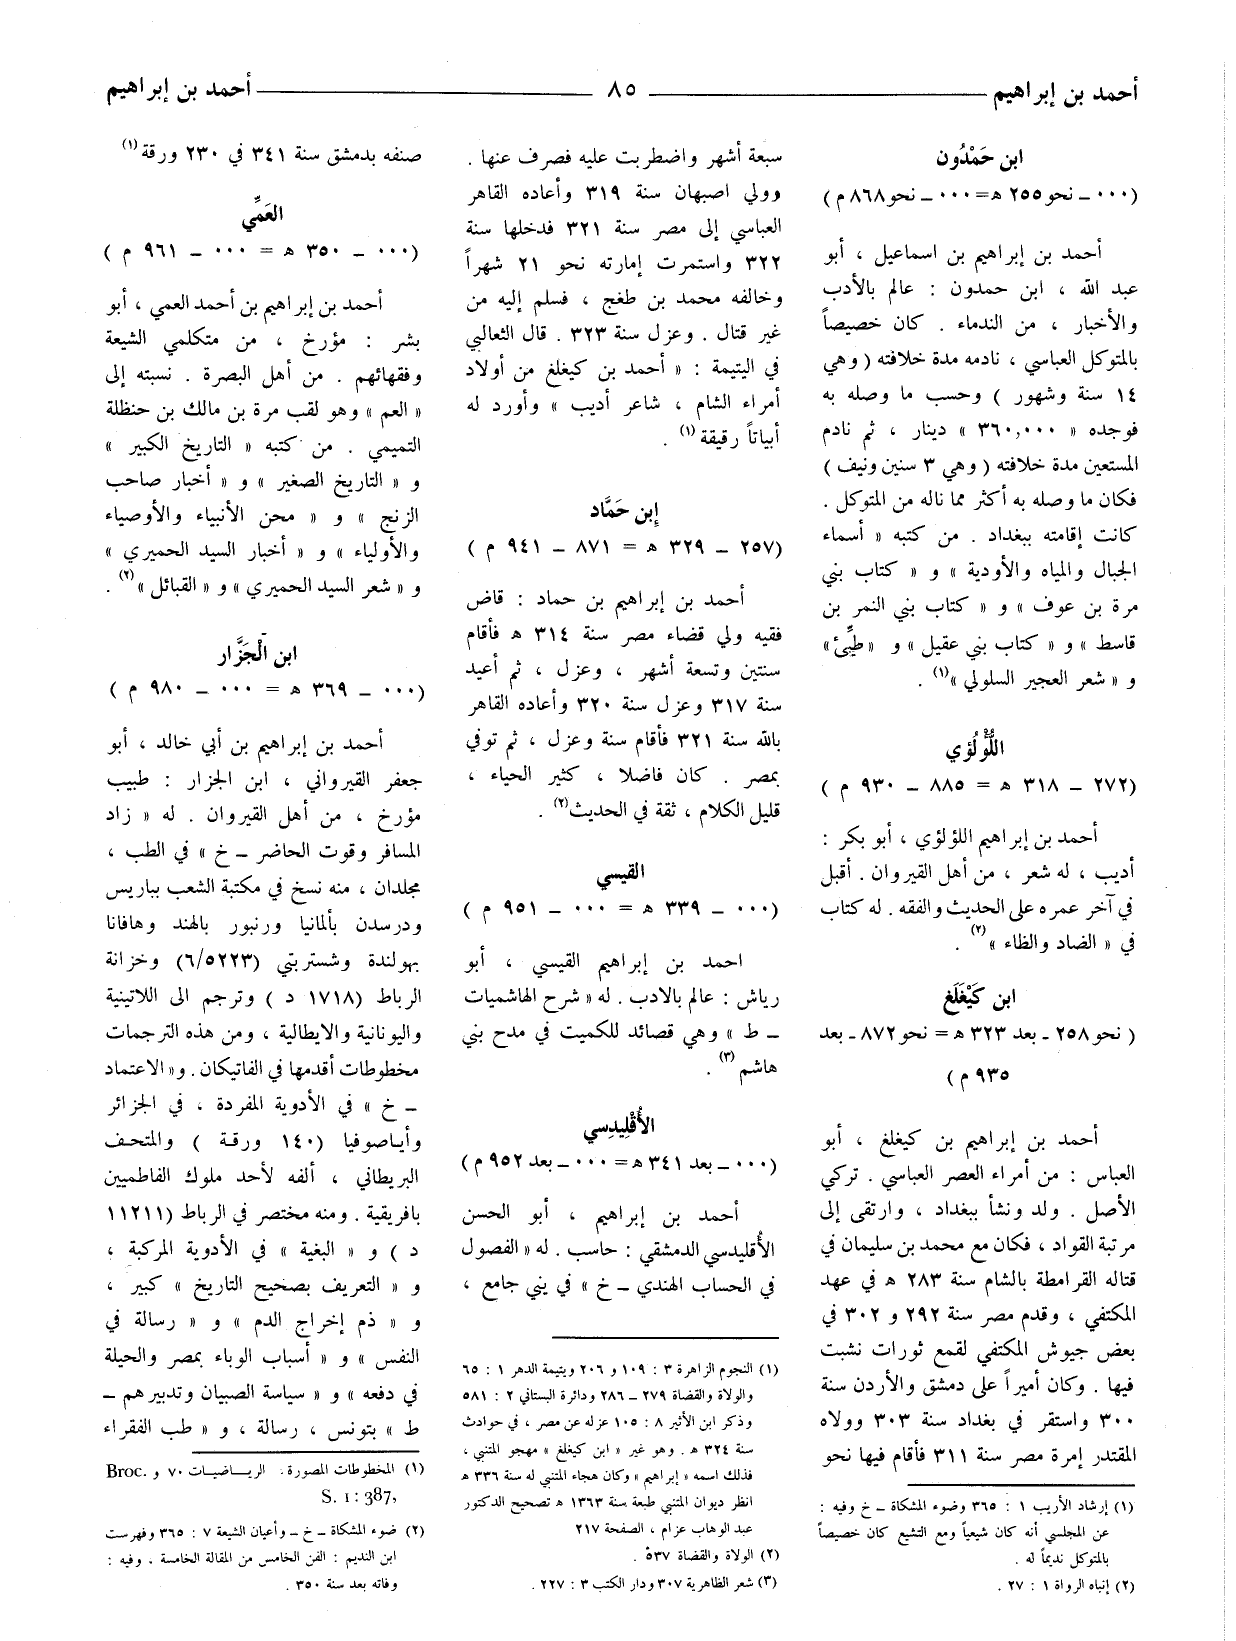 أحمد بن إبراهيم
٨٥
أحمد بن إبراهيم
ابن حَمْدُون
(٠٠٠ ـ نحو ٢٥٥ ه‍ = ٠٠٠ ـ نحو ٨٦٨ م)
أحمد بن إبراهيم بن اسماعيل ، أبو
عبد الله ، ابن حمدون : عالم بالأدب
والأخبار ، من الندماء . كان خصيصاً
بالمتوكل العباسي ، نادمه مدة خلافته ( وهي
١٤ سنة وشهور ) وحسب ما وصله به
فوجده « ٣٦٠,٠٠٠ » دينار ، ثم نادم
المستعين مدة خلافته ( وهي ٣ سنين ونيف )
فكان ما وصله به أكثر مما ناله من المتوكل .
كانت إقامته ببغداد . من كتبه « أسماء
الجبال والمياه والأودية » و « كتاب بني
مرة بن عوف » و « كتاب بني النمر بن
قاسط » و « كتاب بني عقيل » و « طيِّئ »
و « شعر العجير السلولي »(١) .
اللُّؤلُؤي
(٢٧٢ ـ ٣١٨ ه‍ = ٨٨٥ ـ ٩٣٠ م )
أحمد بن إبراهيم اللؤلؤي ، أبو بكر :
أديب ، له شعر ، من أهل القيروان . أقبل
في آخر عمره على الحديث والفقه . له كتاب
في « الضاد والظاء »(٢) .
ابن كَيْغَلَغ
( نحو ٢٥٨ ـ بعد ٣٢٣ ه‍ = نحو ٨٧٢ ـ بعد
٩٣٥ م)
أحمد بن إبراهيم بن كيغلغ ، أبو
العباس : من أمراء العصر العباسي . تركي
الأصل . ولد ونشأ ببغداد ، وارتقى إلى
مرتبة القواد ، فكان مع محمد بن سليمان في
قتاله القرامطة بالشام سنة ٢٨٣ ه‍ في عهد
المكتفي ، وقدم مصر سنة ٢٩٢ و ٣٠٢ في
بعض جيوش المكتفي لقمع ثورات نشبت
فيها . وكان أميراً على دمشق والأردن سنة
٣٠٠ واستقر في بغداد سنة ٣٠٣ وولاه
المقتدر إمرة مصر سنة ٣١١ فأقام فيها نحو
(١) إرشاد الأريب ١ : ٣٦٥ وضوء المشكاة ـ خ وفيه :
عن المجلسي أنه كان شيعياً ومع التشيع كان خصيصاً
بالمتوكل نديماً له .
(٢) إنباه الرواة ١ : ٢٧ .
سبعة أشهر واضطربت عليه فصرف عنها .
وولي اصبهان سنة ٣١٩ وأعاده القاهر
العباسي إلى مصر سنة ٣٢١ فدخلها سنة
٣٢٢ واستمرت إمارته نحو ٢١ شهراً
وخالفه محمد بن طغج ، فسلم إليه من
غير قتال . وعزل سنة ٣٢٣ . قال الثعالبي
في اليتيمة : « أحمد بن كيغلغ من أولاد
أمراء الشام ، شاعر أديب » وأورد له
أبياتاً رقيقة (١) .
إبن حَمَّاد
(٢٥٧ ـ ٣٢٩ ه‍ = ٨٧١ ـ ٩٤١ م )
أحمد بن إبراهيم بن حماد : قاض
فقيه ولي قضاء مصر سنة ٣١٤ ه‍ فأقام
سنتين وتسعة أشهر ، وعزل ، ثم أعيد
سنة ٣١٧ وعزل سنة ٣٢٠ وأعاده القاهر
بالله سنة ٣٢١ فأقام سنة وعزل ، ثم توفي
بمصر . كان فاضلا ، كثير الحياء ،
قليل الكلام ، ثقة في الحديث(٢) .
القيسي
(٠٠٠ ـ ٣٣٩ ه‍ = ٠٠٠ ـ ٩٥١ م )
احمد بن إبراهيم القيسي ، أبو
رياش : عالم بالادب . له « شرح الهاشميات
ـ ط » وهي قصائد للكميت في مدح بني
هاشم (٣) .
الأُقْلِيدِسي
(٠٠٠ ـ بعد ٣٤١ ه‍ = ٠٠٠ ـ بعد ٩٥٢ م )
أحمد بن إبراهيم ، أبو الحسن
الأُقليدسي الدمشقي : حاسب . له « الفصول
في الحساب الهندي ـ خ » في يني جامع ،
(١) النجوم الزاهرة ٣ : ١٠٩ و ٢٠٦ ويتيمة الدهر ١ : ٦٥
والولاة والقضاة ٢٧٩ ـ ٢٨٦ ودائرة البستاني ٢ : ٥٨١
وذكر ابن الأثير ٨ : ١٠٥ عزله عن مصر ، في حوادث
سنة ٣٢٤ ه‍ . وهو غير « ابن كيغلغ » مهجو المتنبي ،
فذلك اسمه « إبراهيم » وكان هجاء المتنبي له سنة ٣٣٦ ه‍
انظر ديوان المتنبي طبعة سنة ١٣٦٣ ه‍ تصحيح الدكتور
عبد الوهاب عزام ، الصفحة ٢١٧
(٢) الولاة والقضاة ٥٣٧ .
(٣) شعر الظاهرية ٣٠٧ ودار الكتب ٣ : ٢٢٧ .
صنفه بدمشق سنة ٣٤١ في ٢٣٠ ورقة (١)
العَمِّي
(٠٠٠ ـ ٣٥٠ ه‍ = ٠٠٠ ـ ٩٦١ م )
أحمد بن إبراهيم بن أحمد العمي ، أبو
بشر : مؤرخ ، من متكلمي الشيعة
وفقهائهم . من أهل البصرة . نسبته إلى
« العم » وهو لقب مرة بن مالك بن حنظلة
التميمي . من كتبه « التاريخ الكبير »
و « التاريخ الصغير » و « أخبار صاحب
الزنج » و « محن الأنبياء والأوصياء
والأولياء » و « أخبار السيد الحميري »
و « شعر السيد الحميري » و « القبائل »(٢) .
ابن الْجَزَّار
(٠٠٠ ـ ٣٦٩ ه‍ = ٠٠٠ ـ ٩٨٠ م )
أحمد بن إبراهيم بن أبي خالد ، أبو
جعفر القيرواني ، ابن الجزار : طبيب
مؤرخ ، من أهل القيروان . له « زاد
المسافر وقوت الحاضر ـ خ » في الطب ،
مجلدان ، منه نسخ في مكتبة الشعب بباريس
ودرسدن بألمانيا ورنبور بالهند وهافانا
بهولندة وشستربتي (٦/٥٢٢٣) وخزانة
الرباط (١٧١٨ د ) وترجم الى اللاتينية
واليونانية والايطالية ، ومن هذه الترجمات
مخطوطات أقدمها في الفاتيكان . و « الاعتماد
ـ خ » في الأدوية المفردة ، في الجزائر
وأياصوفيا (١٤٠ ورقة ) والمتحف
البريطاني ، ألفه لأحد ملوك الفاطميين
بافريقية . ومنه مختصر في الرباط (١١٢١١
د ) و « البغية » في الأدوية المركبة ،
و « التعريف بصحيح التاريخ » كبير ،
و « ذم إخراج الدم » و « رسالة في
النفس » و « أسباب الوباء بمصر والحيلة
في دفعه » و « سياسة الصبيان وتدبيرهم ـ
ط » بتونس ، رسالة ، و « طب الفقراء
(١) المخطوطات المصورة. الرياضيات ٧٠ و Broc.
S. 1 : 387,
(٢) ضوء المشكاة ـ خ ـ وأعيان الشيعة ٧ : ٣٦٥ وفهرست
ابن النديم : الفن الخامس من المقالة الخامسة ، وفيه :
وفاته بعد سنة ٣٥٠ .